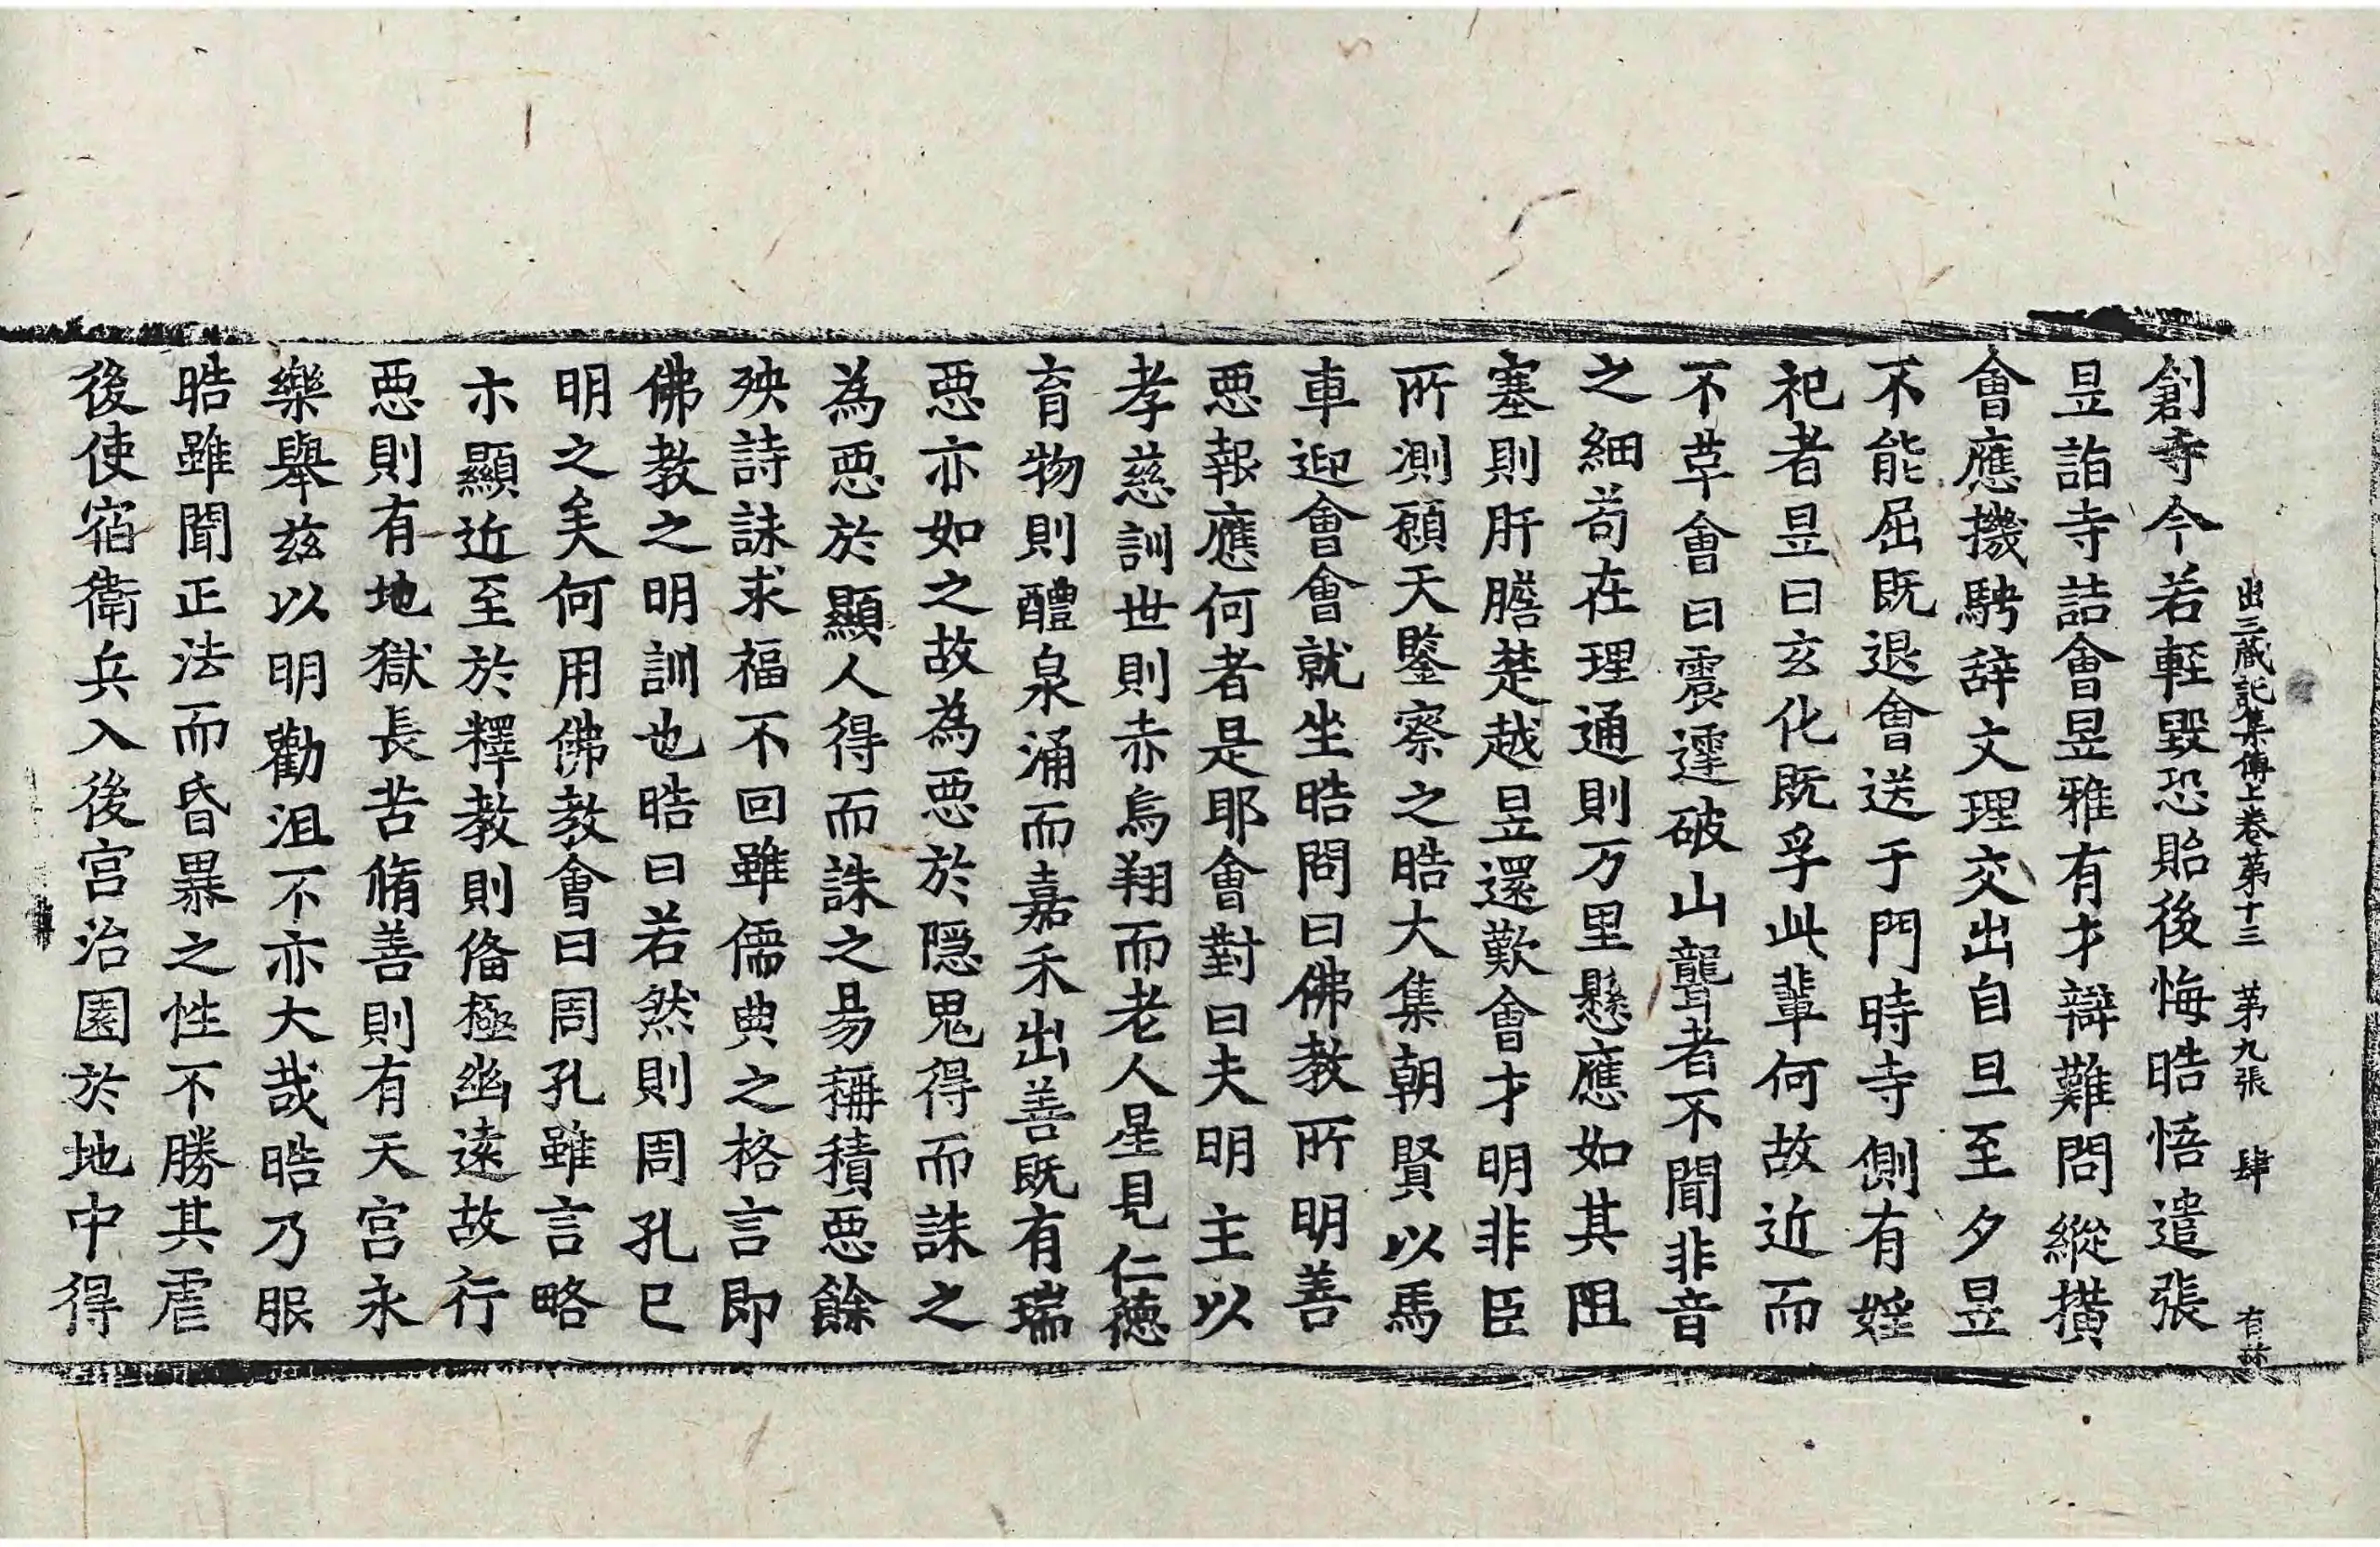 出三藏記集傳上卷苐十三 苐九張 肆 有
創寺今若輕毀恐貽後悔晧悟遣張
昱詣寺詰會昱雅有才辯難問縱撗
會應機騁辞文理交出自旦至夕昱
不能屈既退會送于門時寺側有婬
祀者昱曰玄化既孚此輩何故近而
不革會曰震霆破山聾者不聞非音
之細苟在理通則万里懸應如其阻
塞則肝膽楚越昱還歎會才明非臣
所測願天鑒察之晧大集朝賢以馬
車迎會會就坐晧問曰佛教所明善
惡報應何者是耶會對曰夫明主以
孝慈訓世則赤烏翔而老人星見仁德
育物則醴泉涌而嘉禾出善既有瑞
惡亦如之故為惡於隠鬼得而誅之
為惡於顯人得而誅之易稱積惡餘
殃詩詠求福不回雖儒典之格言即
佛教之明訓也晧曰若然則周孔已
明之矣何用佛教會曰周孔雖言略
示顯近至於釋教則俻極幽遠故行
惡則有地獄長苦脩善則有天宮永
樂舉兹以明勸沮不亦大哉晧乃服
晧雖聞正法而昏暴之性不勝其虐
後使宿衛兵入後宮治園於地中得